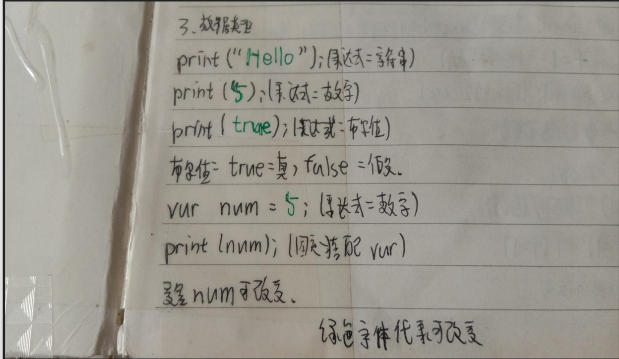 3、数据类型
print ("Hello");(表达式=字符串)
print (5);(表达式=数字)
print ( true);(表达式=布尔值)
布尔值= true=真, false =假、
var num = 5; (表达式=数字)
print (num); (固定搭配 var)
变量num可改变、
绿色字体代表可改变